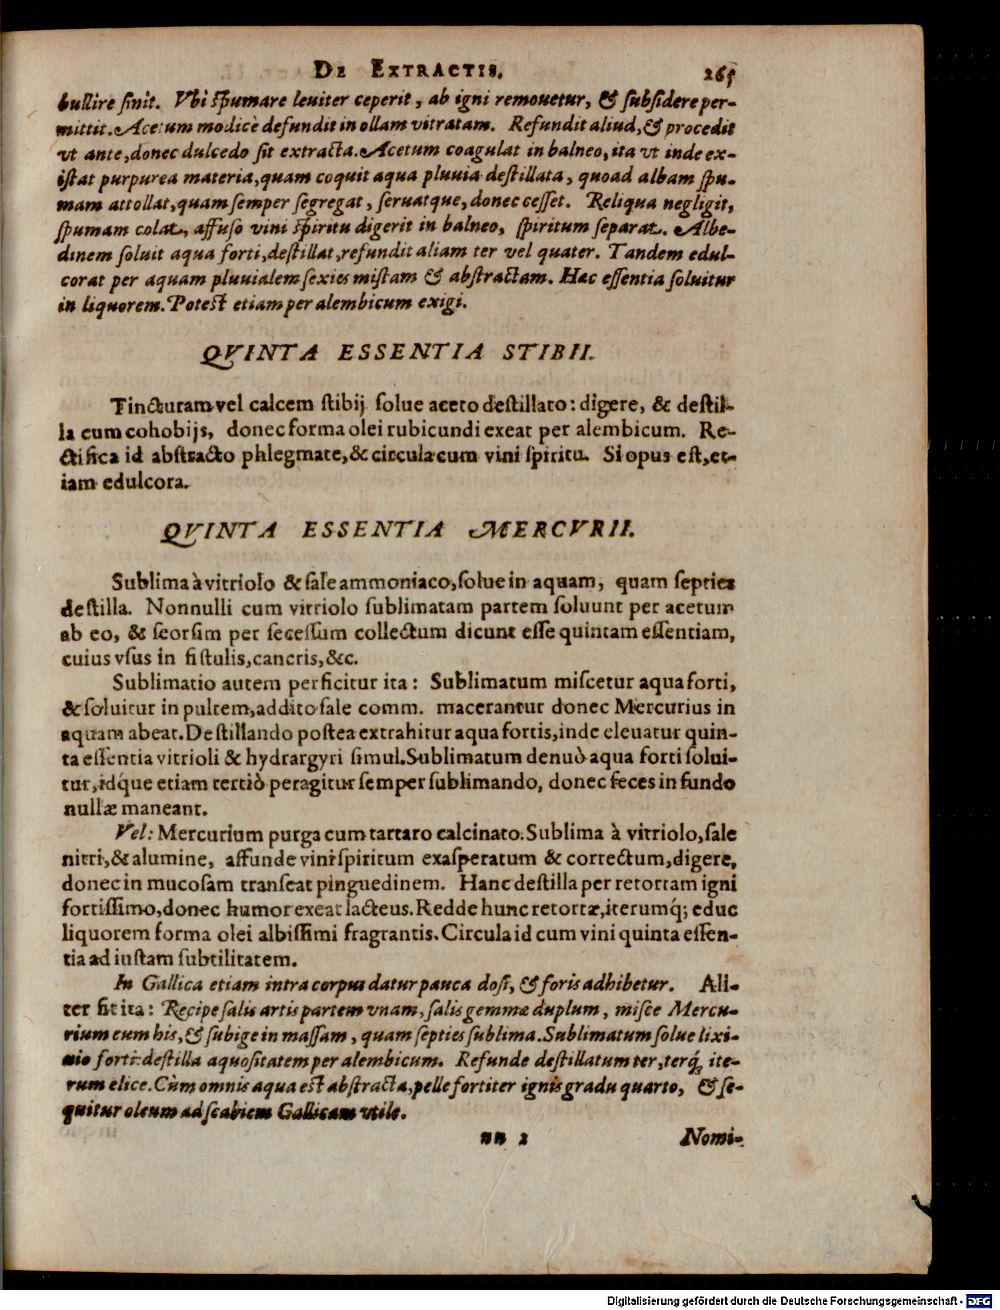 DE EXTRACTIS. 265
bullire sinit. Vbi spumare leuiter ceperit, ab igni remouetur, & subsidere per-
mittit. Acetum modicè defundit in ollam vitratam. Refundit aliud, & procedit
vt ante, donec dulcedo sit extracta. Acetum coagulat in balneo, ita vt inde ex-
istat purpurea materia, quam coquit aqua pluuia destillata, quoad albam spu-
mam attollat, quam semper segregat, seruatque, donec cesset. Reliqua negligit,
spumam colat, affuso vini spiritu digerit in balneo, spiritum separat. Albe-
dinem soluit aqua forti, destillat, refundit aliam ter vel quater. Tandem edul-
corat per aquam pluuialem sexies mistam & abstractam. Hac essentia soluitur
in liquorem. Potest etiam per alembicum exigi.
QVINTA ESSENTIA STIBII.
Tincturam vel calcem stibij solue aceto destillato: digere, & destil-
la cum cohobijs, donec forma olei rubicundi exeat per alembicum. Re-
ctifica id abstracto phlegmate, & circula cum vini spiritu. Si opus est, et-
iam edulcora.
QVINTA ESSENTIA MERCVRII.
Sublima à vitriolo & sale ammoniaco, solue in aquam, quam septies
destilla. Nonnulli cum vitriolo sublimatam partem soluunt per acetum
ab eo, & seorsim per secessum collectum dicunt esse quintam essentiam,
cuius vsus in fistulis, cancris, &c.
Sublimatio autem perficitur ita: Sublimatum miscetur aqua forti,
& soluitur in pultem, addito sale comm. macerantur donec Mercurius in
aquam abeat. Destillando postea extrahitur aqua fortis, inde eleuatur quin-
ta essentia vitrioli & hydrargyri simul. Sublimatum denuò aqua forti solui-
tur, idq́ue etiam tertiò peragitur semper sublimando, donec feces in fundo
nullæ maneant.
Vel: Mercurium purga cum tartaro calcinato. Sublima à vitriolo, sale
nitri, & alumine, affunde vini spiritum exasperatum & correctum, digere,
donec in mucosam transeat pinguedinem. Hanc destilla per retortam igni
fortissimo, donec humor exeat lacteus. Redde hunc retortæ, iterumq́; educ
liquorem forma olei albissimi fragrantis. Circula id cum vini quinta essen-
tia ad iustam subtilitatem.
In Gallica etiam intra corpus datur pauca dosi, & foris adhibetur. Ali-
ter fit ita: Recipe salis artis partem vnam, salis gemmæ duplum, misce Mercu-
rium cum his, & subige in massam, quam septies sublima. Sublimatum solue lixi-
uio forti: destilla aquositatem per alembicum. Refunde destillatum ter, terq́; ite-
rum elice. Cùm omnis aqua est abstracta, pelle fortiter ignis gradu quarto, & se-
quitur oleum ad scabiem Gallicam vtile.
nn 2 Nomi-
Digitalisierung gefördert durch die Deutsche Forschungsgemeinschaft - DFG